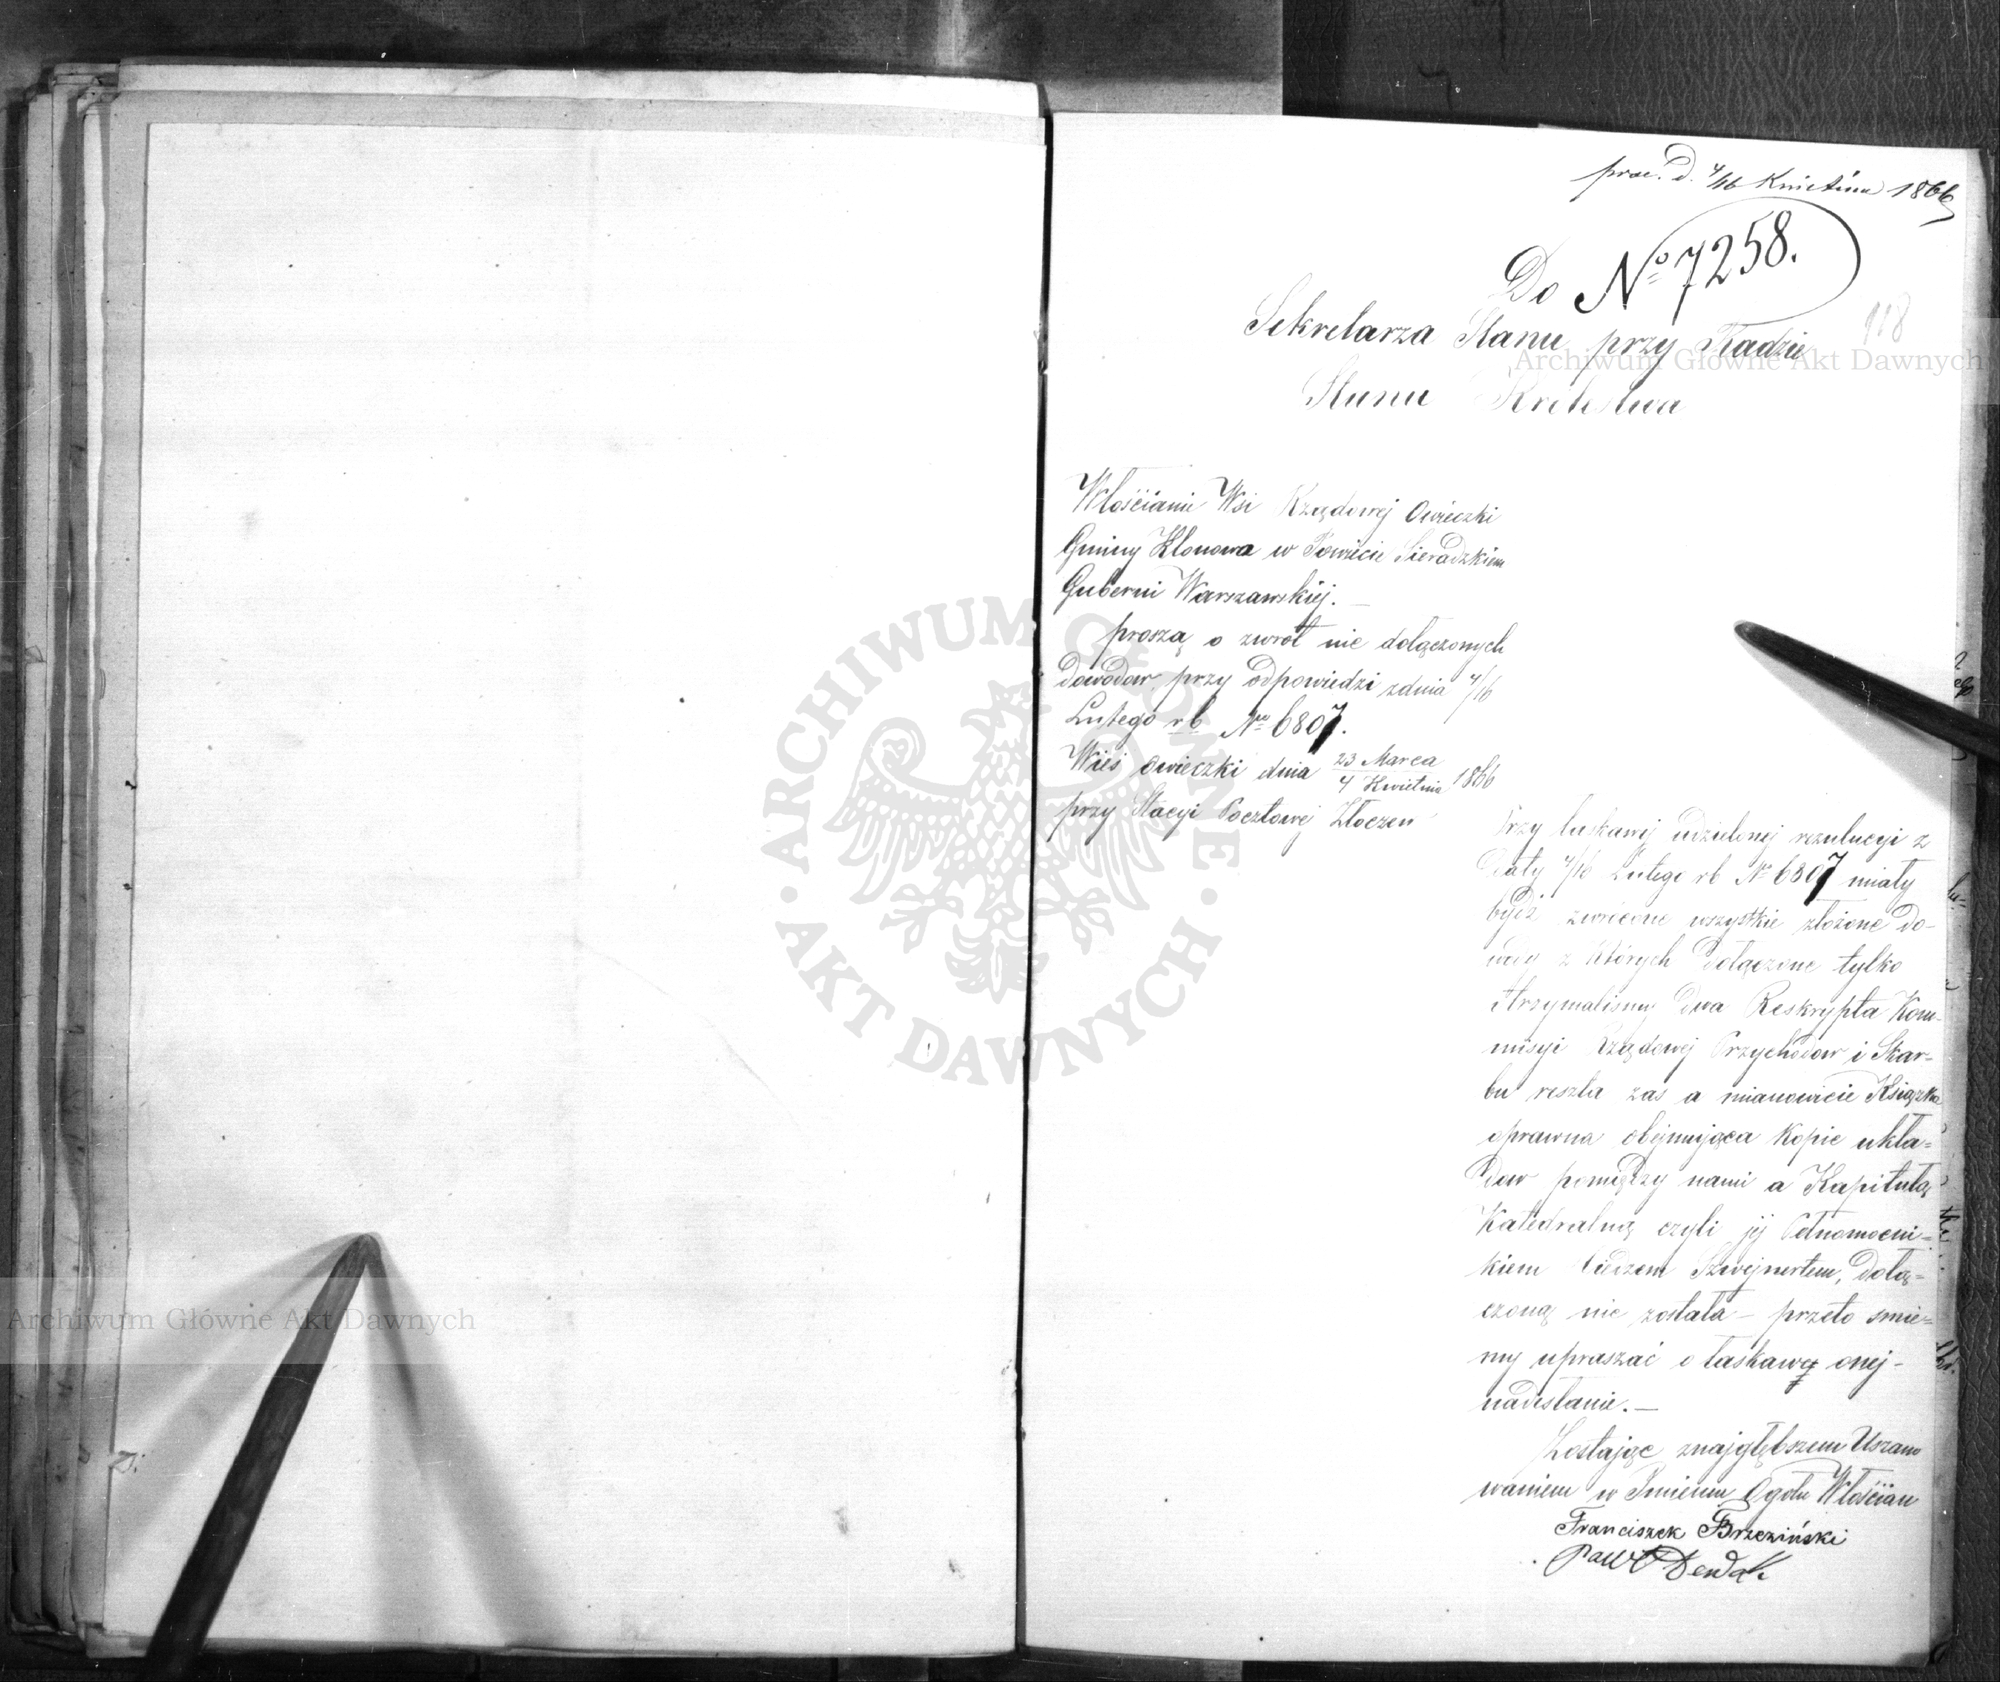 prae. d. 4/16 Kwietnia 1866
No 7258.
118
Do
Sekretarza Stanu przy Radzie
Stanu Królestwa
Włościanie Wsi Rządowej Owieczki
Gminy Klonowa w Powiecie Sieradzkim
Guberni Warszawskiéj. —
proszą o zwrot nie dołączonych
dowodow, przy odpowiedzi zdnia 4/16
Lutego rb No 6807.
Wieś Owieczki dnia 23 Marca / 4 Kwietnia 1866
przy Stacyi Pocztowej Złoczew
Przy łaskawej udzielonej rezulucyi z
Daty 4/16 Lutego rb No 6807 miały
bydź zwrócone wszystkie złożone do-
wody z których dołączone tylko
otrzymalismy dwa Reskrypta Kom-
missyi Rządowej Przychodow i Skar-
bu reszta zas a mianowicie Książka
oprawna obejmująca Kopie ukła-
dow pomiędzy nami a Kapitułą
Katedralną czyli jéj Pełnomocni-
kiem Szwejnertem, dołą-
czoną nie została — przeto smie-
my upraszać o łaskawe onej-
nadesłanie. —
Zostając znajgłębszem Uszano
waniem w Imieniu Ogołu Włościan
Franciszek Brzeziński
Paweł Dendak
ARCHIWUM GŁÓWNE AKT DAWNYCH
Archiwum Główne Akt Dawnych
Archiwum Główne Akt Dawnych